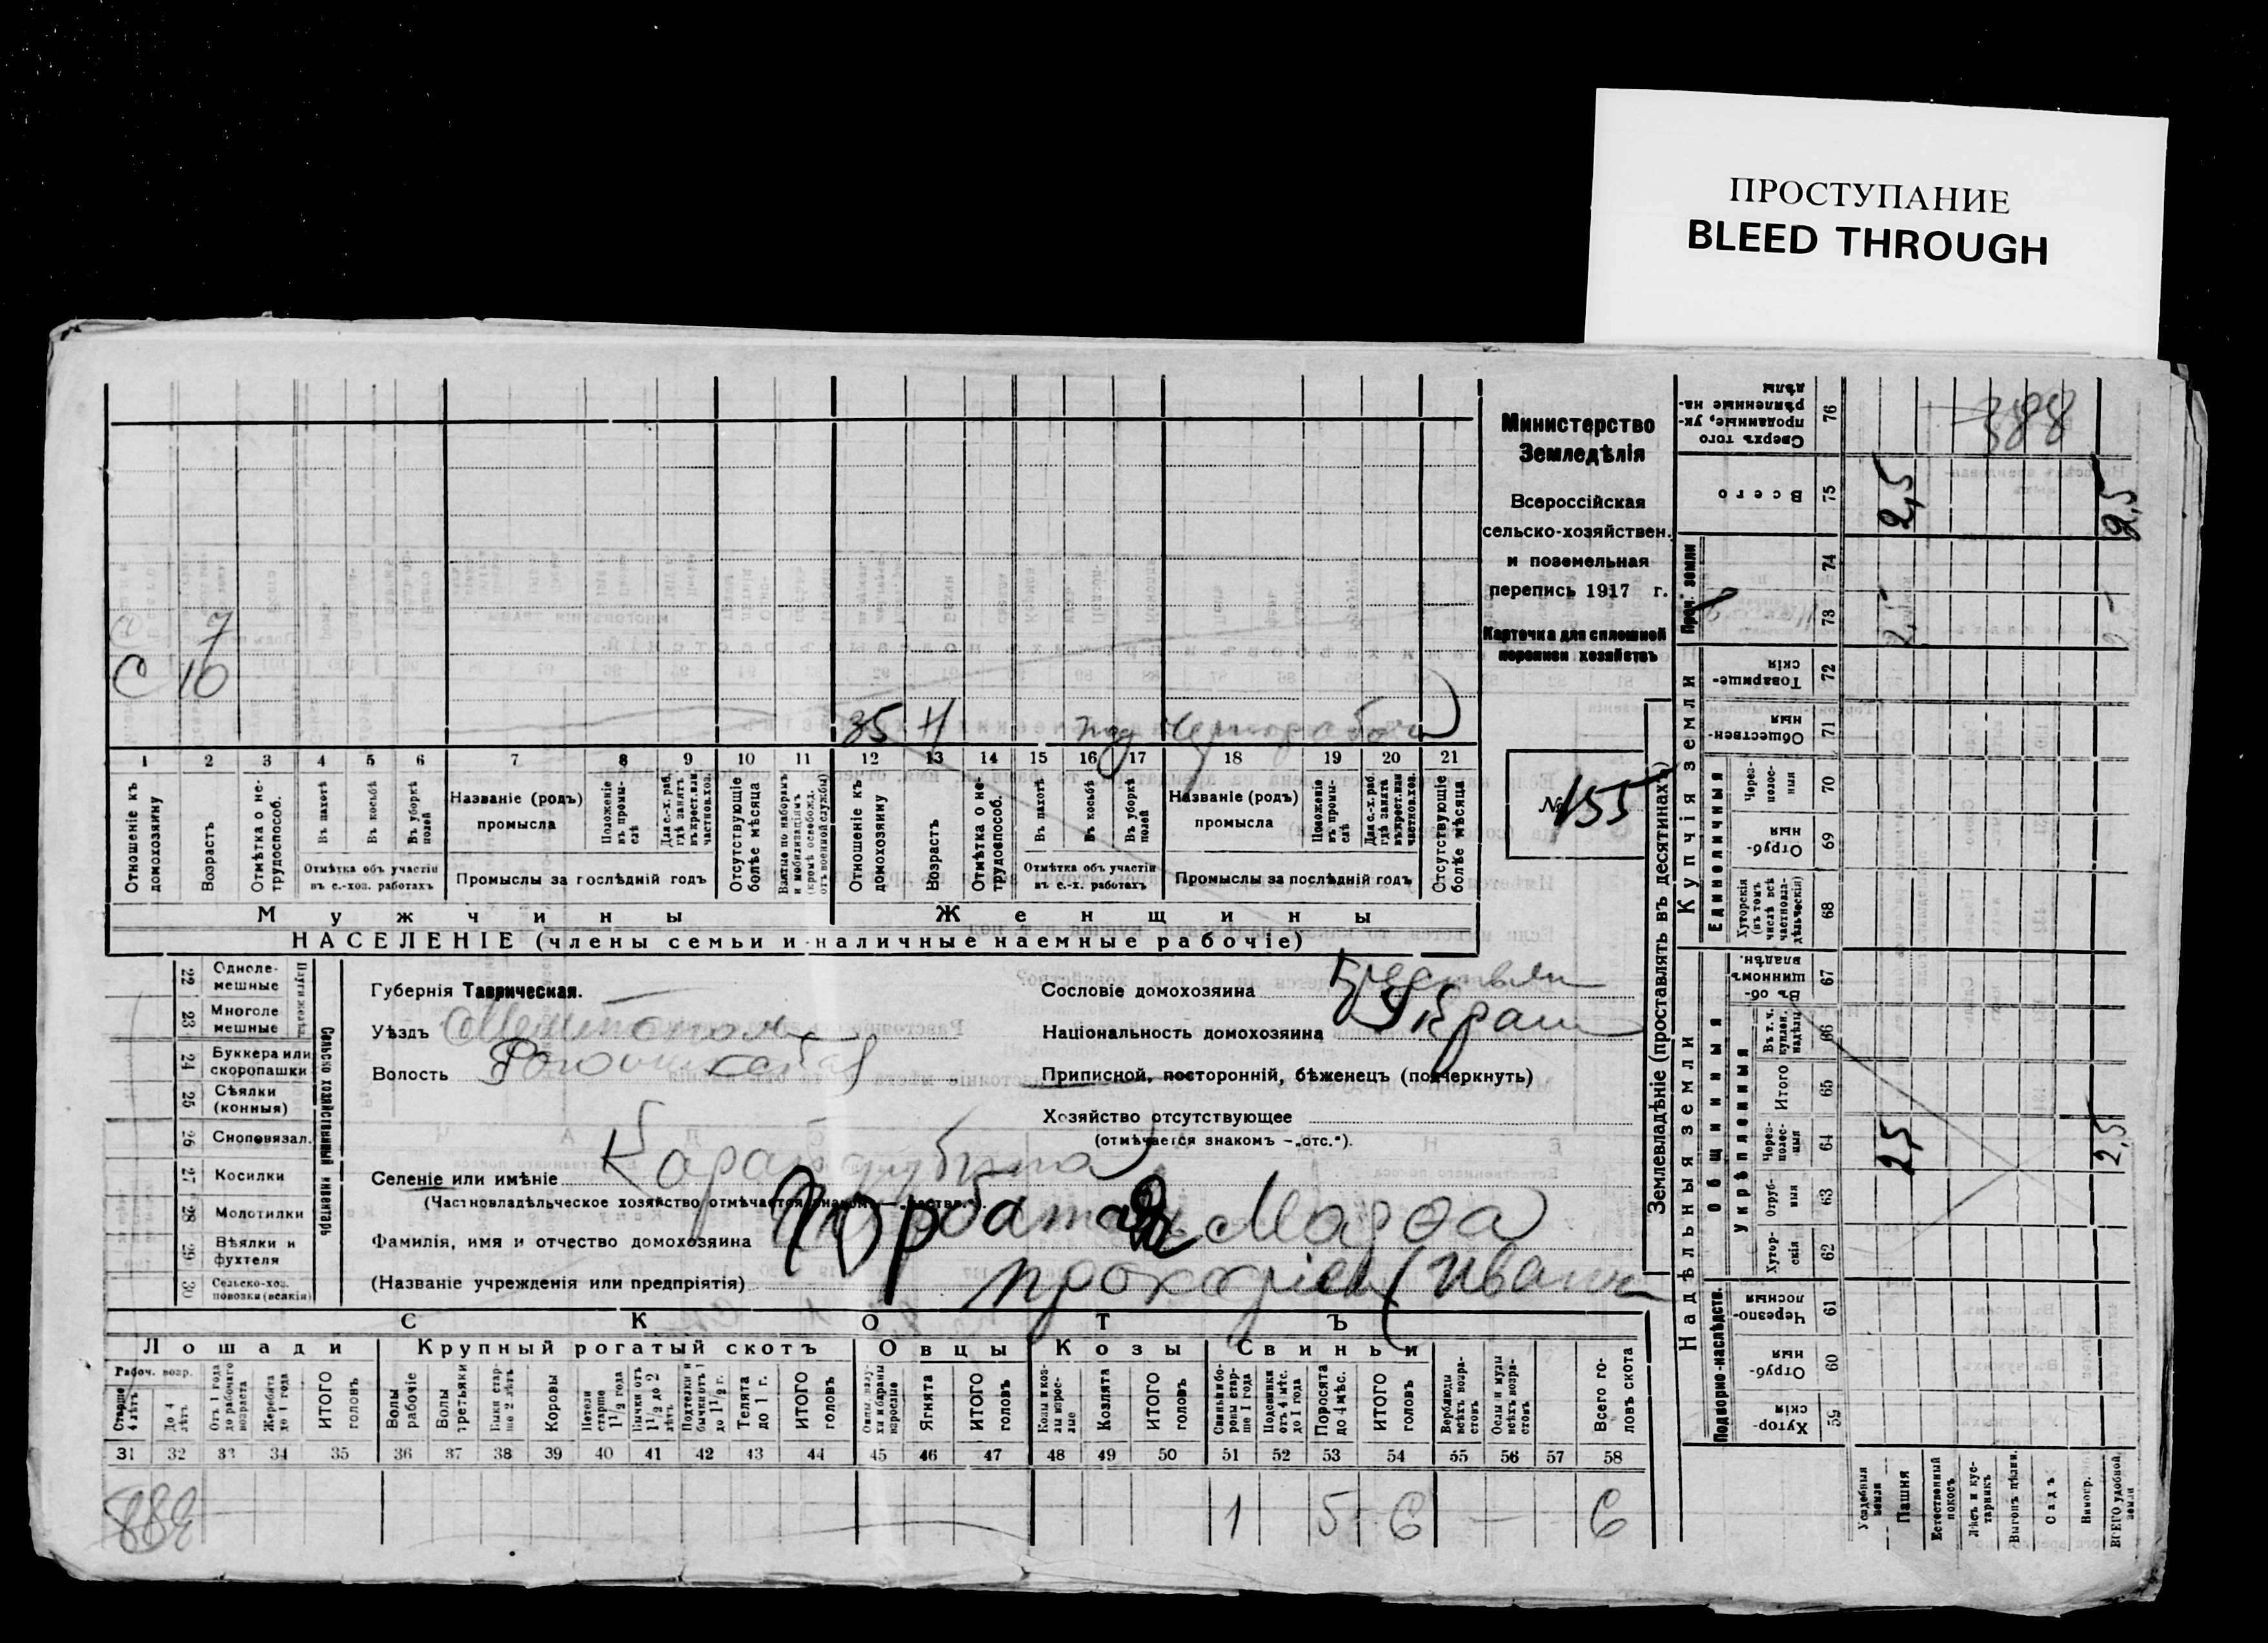 ПРОСТУПАНИЕ
BLEED THROUGH
С 7
С 10
35 Н год Чернорабоч
1 2 3 4 5 6 7 8 9 10 11 12 13 14 15 16 17 18 19 20 21
Отношеніе къ домохозяину
Возрастъ
Отмѣтка о не-
трудоспособ.
Въ пахотѣ
Въ косьбѣ
Въ уборкѣ полей
Отмѣтка объ участіи
въ с.-хоз. работахъ
Названіе (родъ)
промысла
Положеніе
въ промы-
слѣ
Для с.-х. раб.
гдѣ занятъ
въ крест. или
частнов. хоз.
Промыслы за послѣдній годъ
Отсутствующіе
болѣе мѣсяца
Взятые по наборамъ
и мобилизаціямъ
(кромѣ освобожд.
отъ военной службы)
Отношеніе къ
домохозяину
Возрастъ
Отмѣтка о не-
трудоспособ.
Въ пахотѣ
Въ косьбѣ
Въ уборкѣ
полей
Отмѣтка объ участіи
въ с.-х. работахъ
Названіе (родъ)
промысла
Положеніе
въ промы-
слѣ
Для с.-х. раб.
гдѣ занята
въ крест. или
частнов. хоз.
Промыслы за послѣдній годъ
Отсутствующіе
болѣе мѣсяца
Мужчины
Женщины
НАСЕЛЕНІЕ (члены семьи и наличные наемные рабочіе)
Министерство
Земледѣлія
Всероссійская
сельско-хозяйствен.
и поземельная
перепись 1917 г.
Карточка для сплошной
переписи хозяйствъ
№ 155
22 Одноле-
мешные
23 Многоле
мешные
24 Буккера или
скоропашки
25 Сѣялки
(конныя)
26 Сноповязал.
27 Косилки
28 Молотилки
29 Вѣялки и
фухтеля
30 Сельско-хоз.
повозки (всякія)
Сельско хозяйственный инвентарь
Губернія Таврическая.
Уѣздъ Мелитопол
Волость
Селеніе или имѣніе
(Частновладѣльческое хозяйство отмѣчается знакомъ
Фамилія, имя и отчество домохозяина Горбатая
(Названіе учрежденія или предпріятія)
Сословіе домохозяина Крестьян
Національность домохозяина Украин
Приписной, посторонній, бѣженецъ (подчеркнуть)
Хозяйство отсутствующее
(отмѣчается знакомъ —„отс.“).
СКОТЪ
Лошади
Крупный рогатый скотъ
Овцы
Козы
Свиньи
Рабоч. возр.
Старше
4 лѣтъ
До 4
лѣтъ
Отъ 1 года
до рабочаго
возраста
Жеребята
до 1 года
ИТОГО
головъ
Волы
рабочіе
Волы
третьяки
Быки стар-
ше 2 лѣтъ
Коровы
Нетели
старше
1 1/2 года
Бычки отъ
1 1/2 до 2
лѣтъ
Подтелки и
бычки отъ 1
до 1 1/2 г.
Телята
до 1 г.
ИТОГО
головъ
Овцы, валу-
хи и бараны
взрослые
Ягнята
ИТОГО
головъ
Козы и коз-
лы взрос-
лые
Козлята
ИТОГО
головъ
Свиньи и бо-
ровы стар-
ше 1 года
Подсвинки
отъ 4 мѣс.
до 1 года
Поросята
до 4 мѣс.
ИТОГО
головъ
Верблюды
всѣхъ возра-
стовъ
Ослы и мулы
всѣхъ возра-
стовъ
Всего го-
ловъ скота
31 32 33 34 35 36 37 38 39 40 41 42 43 44 45 46 47 48 49 50 51 52 53 54 55 56 57 58
1 5 6 — 6
388
Землевладѣніе (проставлять въ десятинахъ)
Купчія земли
Надѣльныя земли
Сверхъ того
проданные, ук-
рѣпленные на-
дѣлы
76
Всего
75
Проч. земли
74
73
Товарище-
скія
72
Обществен-
ныя
71
Единоличныя
Через-
полос-
ныя
70
Отруб-
ныя
69
Хуторскія
(въ томъ
числѣ всѣ
частновла-
дѣльческія)
68
Общинныя
Въ об-
щинномъ
владѣн.
67
Укрѣпленныя
Въ т. ч.
куплен.
надѣлы
66
Итого
65
Через-
полос-
ныя
64
Отруб-
ныя
63
Хутор-
скія
62
Подворно-наслѣдств.
Черезпо-
лосныя
61
Отруб-
ныя
60
Хутор-
скія
59
Усадебныя
земли
Пашня
Естественный
покосъ
Лѣсъ и кус-
тарникъ
Выгонъ цѣлин.
Садъ
Виногр.
ВСЕГО удобной
земли
388
2,5
2,5
2,5
2,5